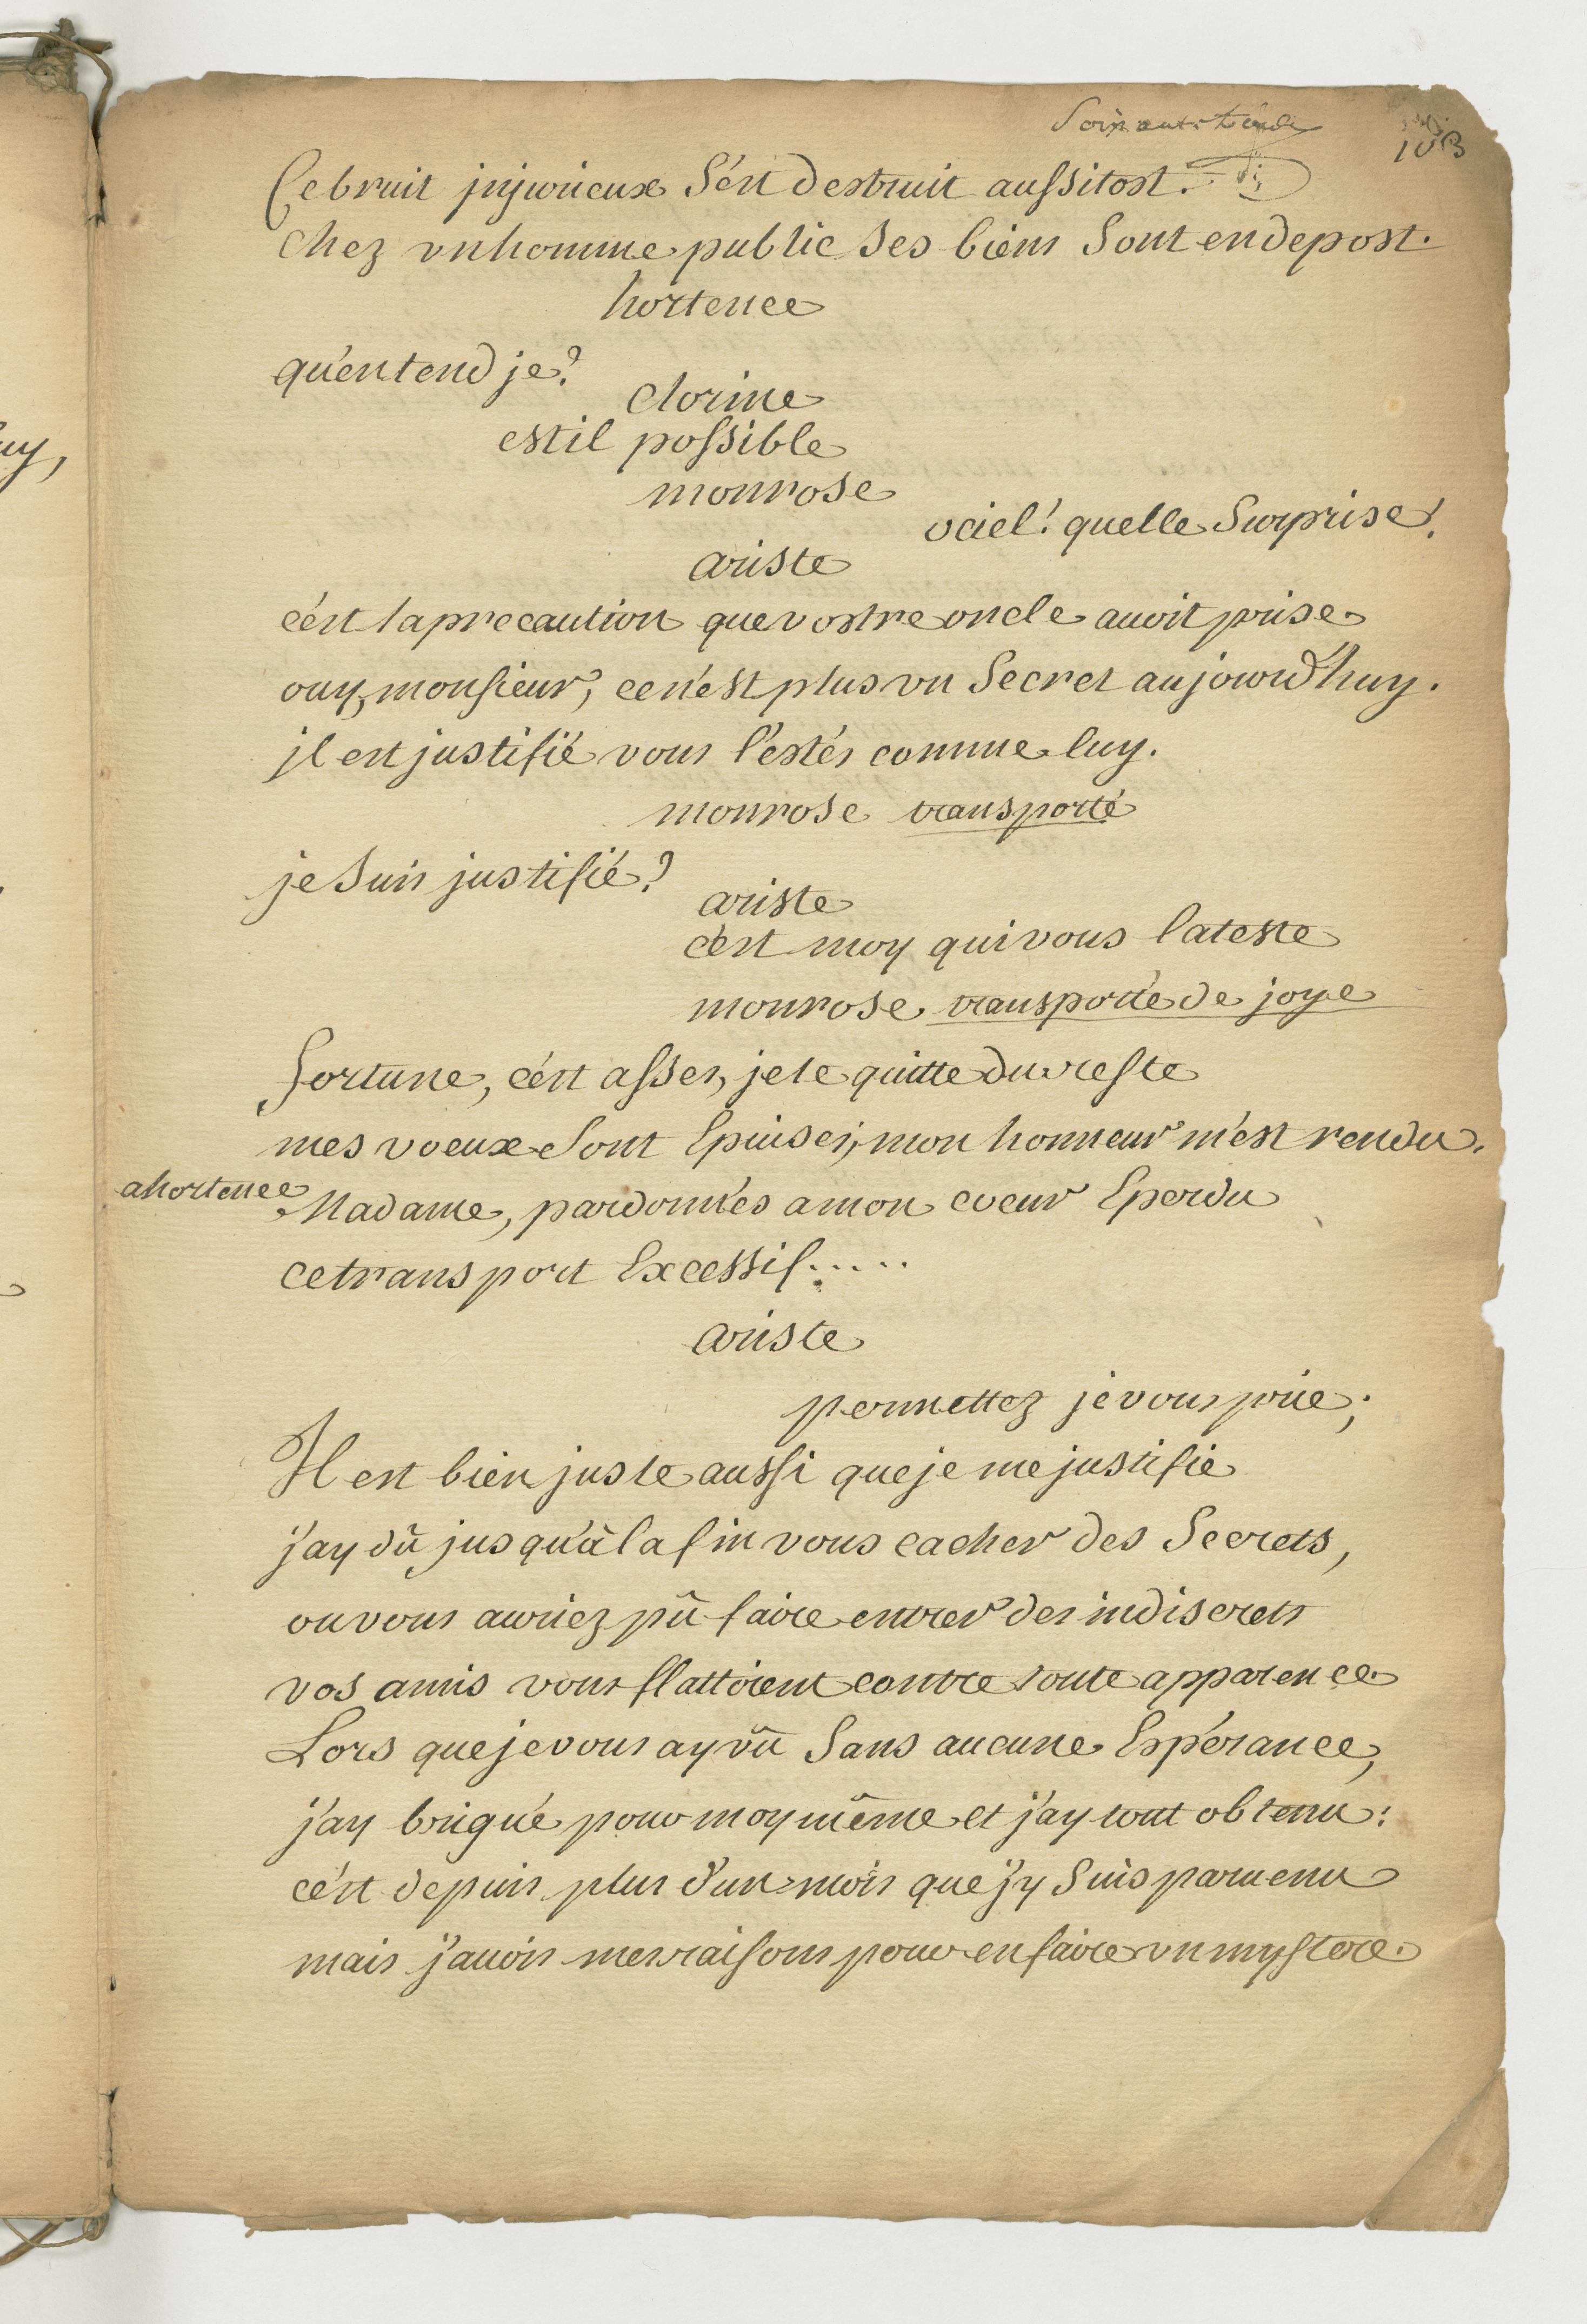 103
Ce bruit jnjurieux s'est destruit aussitost.
chez vn homme public ses biens sont en depost.
hortence
qu'entend je?
clorine
est il possible
monrose
o ciel! quelle surprise!
ariste
c'est la precaution que vostre oncle auoit prise
ouy, monsieur, ce n'est plus vn secret aujourd'huy.
jl est justifié vous l'estés comme luy.
monrose transporté
je suis justifié?
ariste
c'est moy qui vous l'ateste
monrose transporté de joye
fortune, c'est asses, je te quitte du reste
mes voeux sont Epuisés, mon honneur m'est rendu.
a hortence
Madame, pardonnés a mon coeur Eperdu
ce transport Excessif.....
ariste
permettez je vous prie;
Il est bien juste aussi que je me justifie
j'ay dû jusqu'à la fin vous cacher des secrets,
ou vous auriez pû faire entrer des indiscrets
vos amis vous flattoient contre toute apparence
Lors que je vous ay vû sans aucune Espérance,
j'ay brigué pour moy même et j'ay tout obtenu:
c'est depuis plus d'un mois que j'y suis paruenu
mais j'auois mes raisons pour en faire vn mystere.